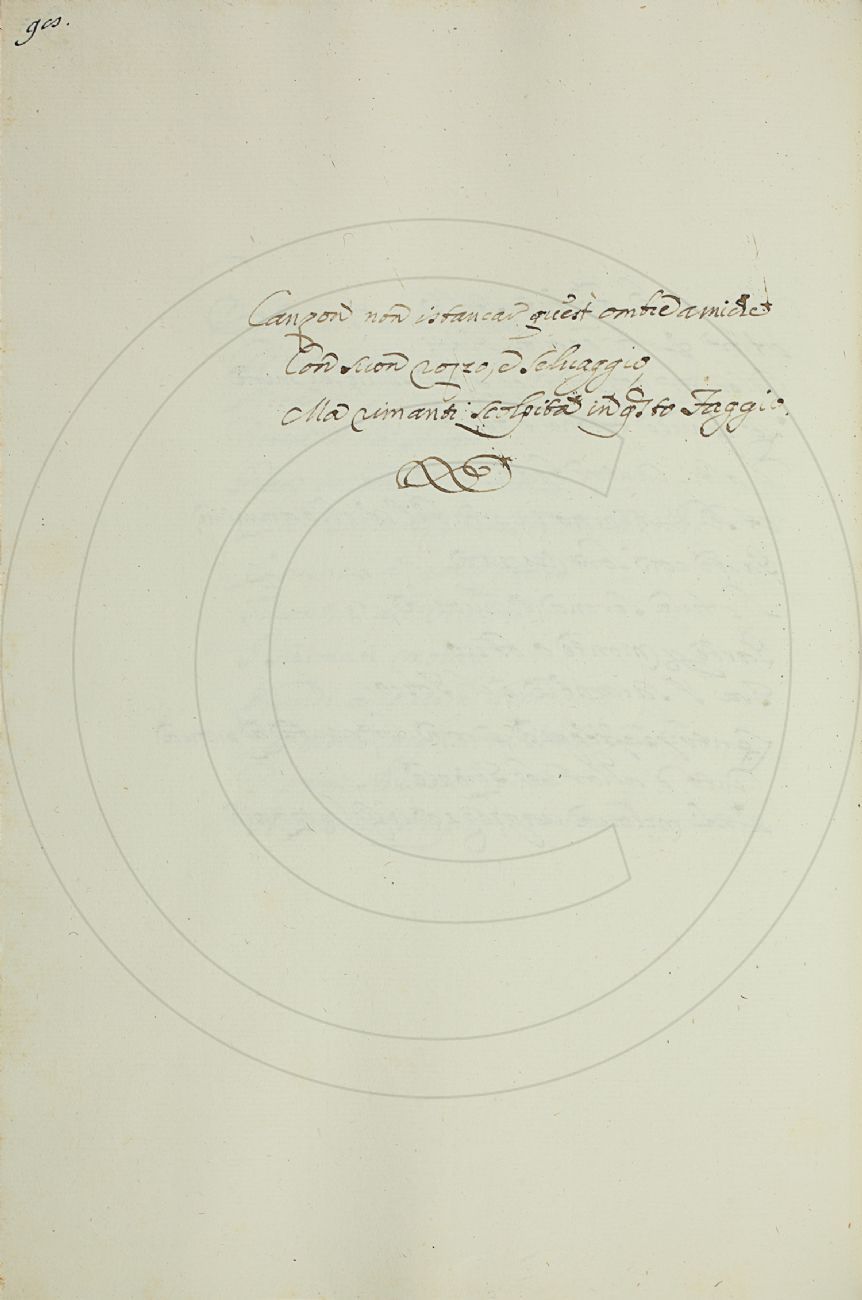 Canzon non istancar quest ombre amiche
Con suon rozzo, e seluaggio
Ma rimanti scolpita in q.sto Faggio.